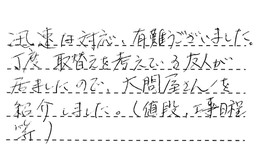 迅速な対応、有難うございました。
丁度、取替えを考えている友人が
居ましたので、大問屋さん/を
紹介しました。(値段、工事日程
等)